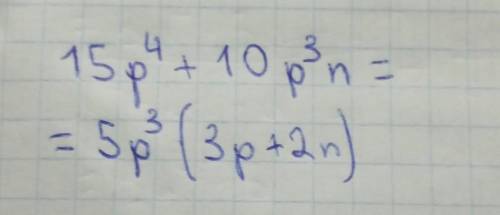 15p⁴ + 10p³n =
= 5p³(3p+2n)